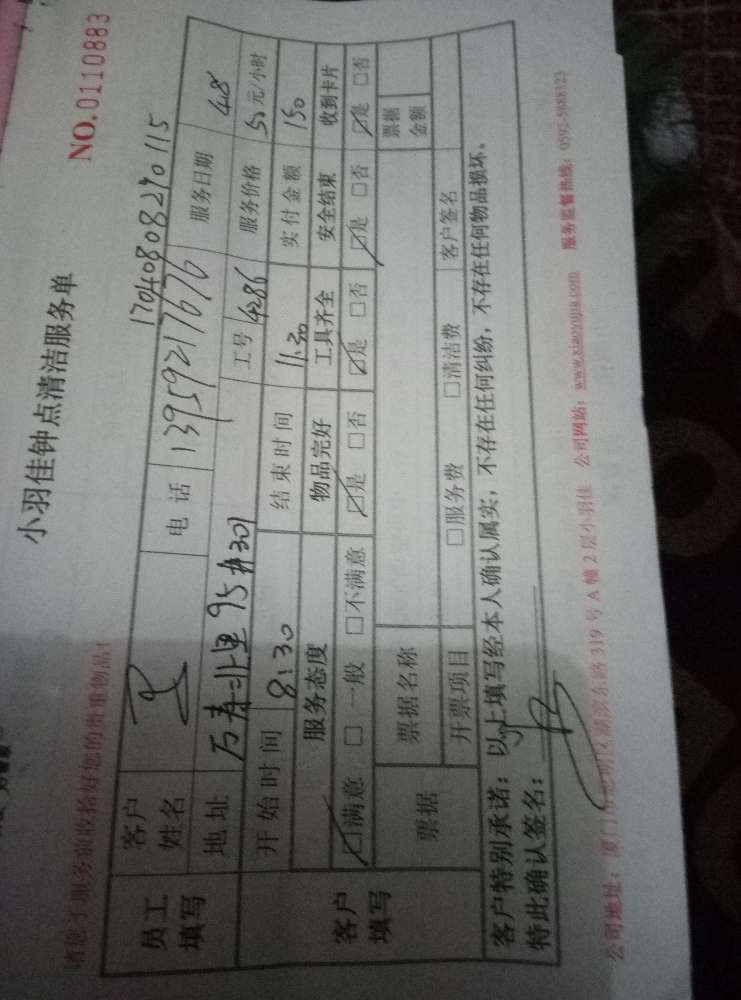 小羽佳钟点清洁服务单
NO.0110883
请您于服务前收拾好您的贵重物品!
17040808290115
员工填写
客户姓名 电话 13959217676 服务日期 4.8
地址 万寿北里95#301 工号 4286 服务价格 50元/小时
客户填写
开始时间 8:30 结束时间 11:30 实付金额 150
服务态度 物品完好 工具齐全 安全结束 收到卡片
☑满意 □一般 □不满意 ☑是 □否 ☑是 □否 ☑是 □否 ☑是 □否
票据 票据名称 票据金额
开票项目 □服务费 □清洁费 客户签名
客户特别承诺：以上填写经本人确认属实，不存在任何纠纷，不存在任何物品损坏。
特此确认签名：
公司地址：厦门市思明区湖滨东路319号A幢2层小羽佳 公司网站：www.xiaoyujia.com 服务监督热线：0592-5888123